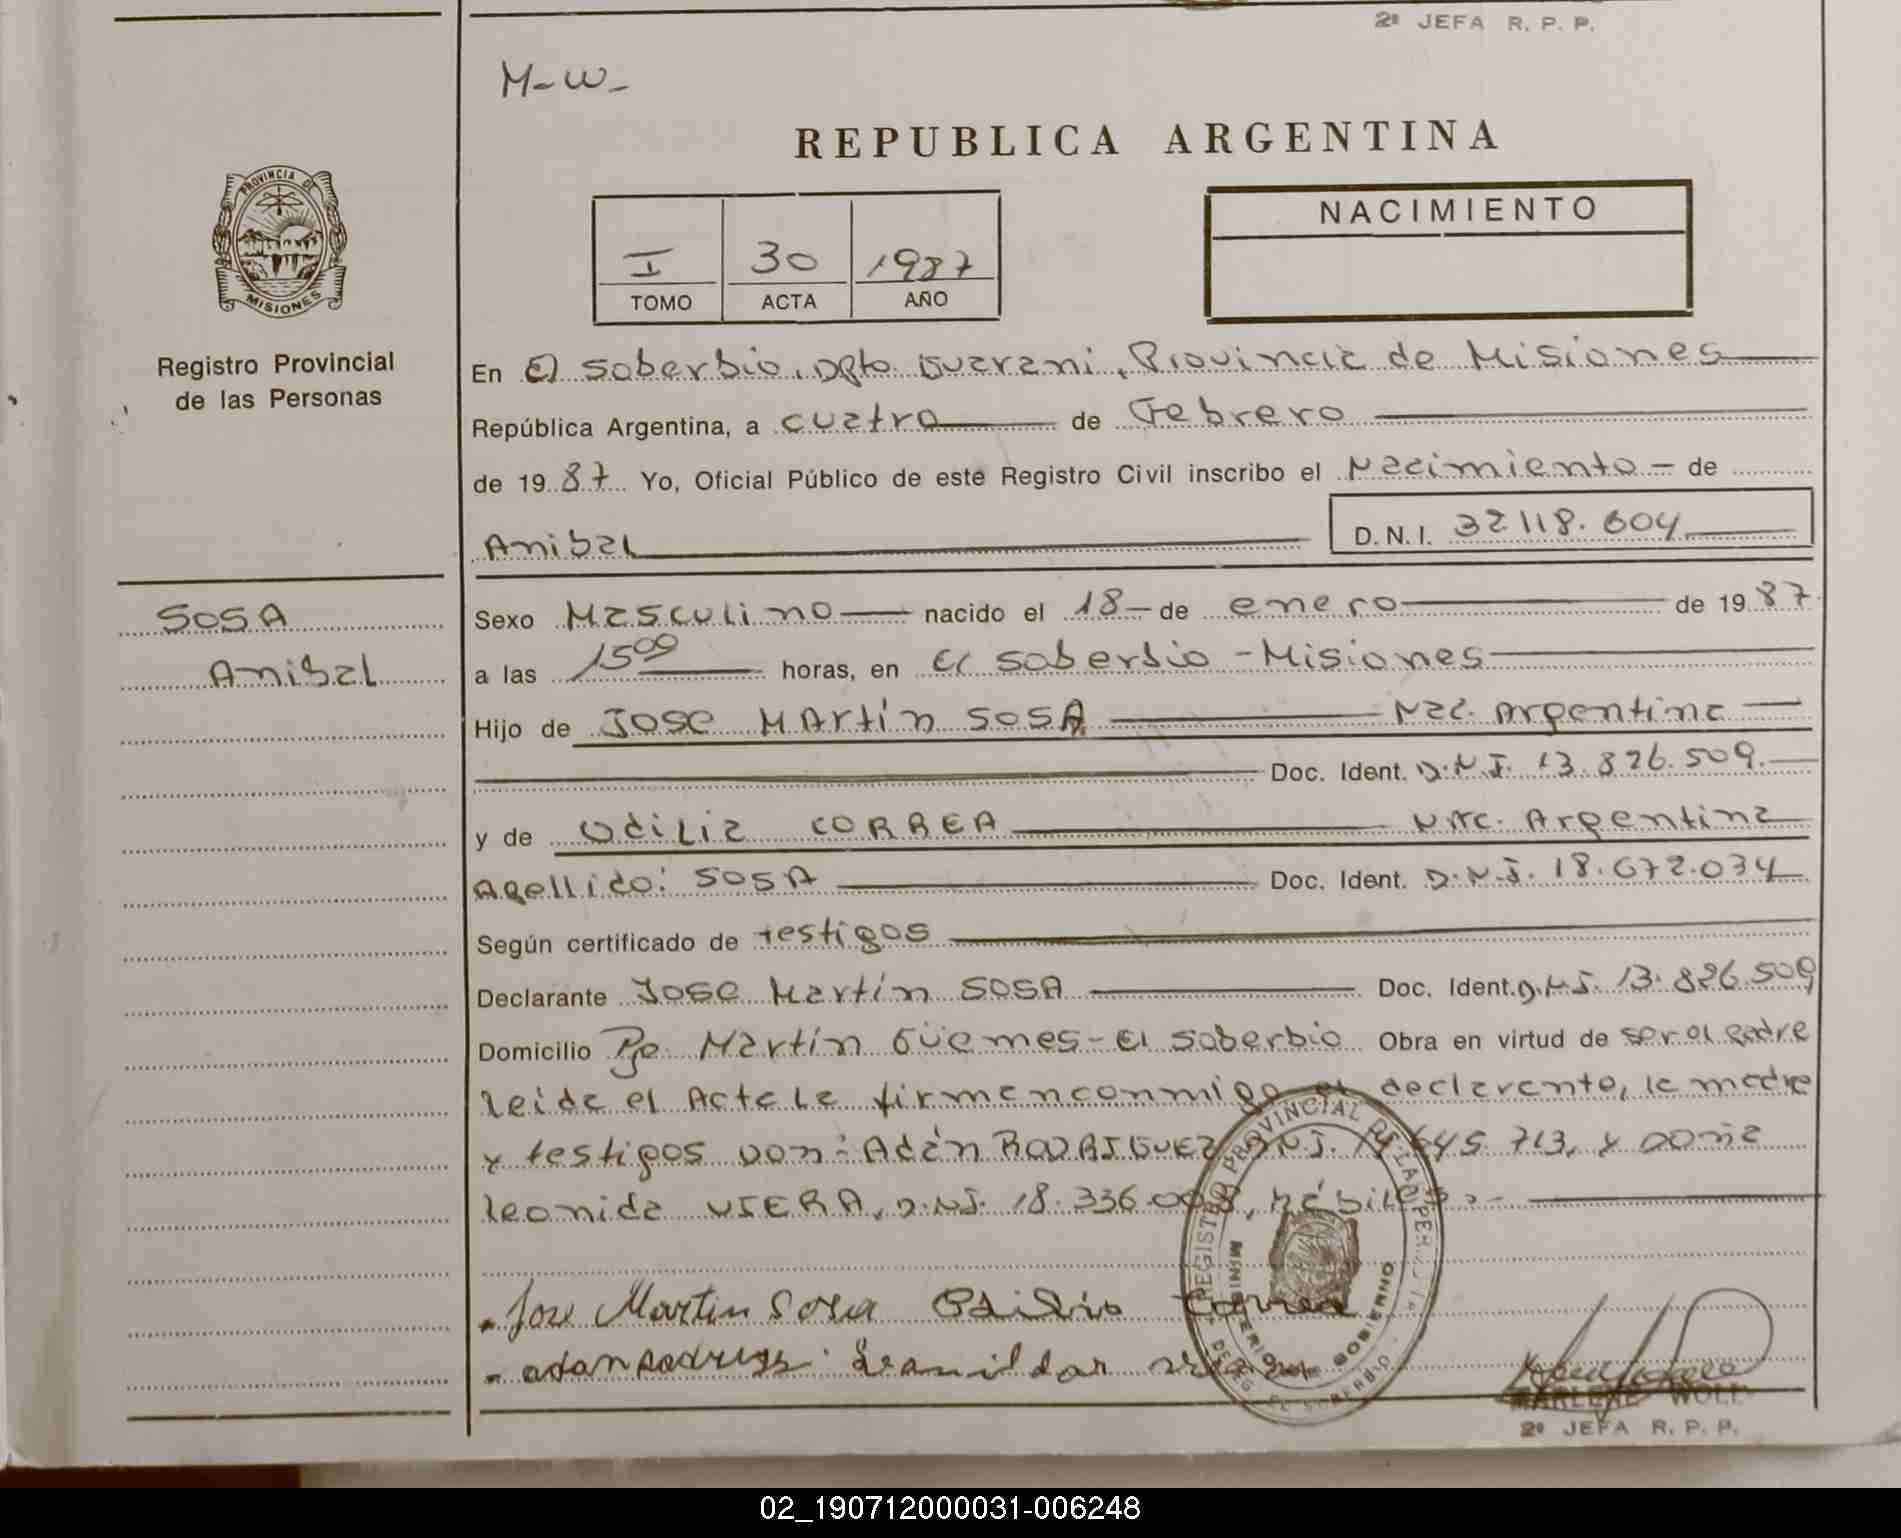 2ª JEFA R. P. P.
M-W-
REPUBLICA ARGENTINA
PROVINCIA DE
MISIONES
Registro Provincial
de las Personas
I 30 1987
TOMO ACTA AÑO
NACIMIENTO
En El Soberbio, Dpto Guarani, Provincia de Misiones
República Argentina, a cuatro de Febrero
de 1987 Yo, Oficial Público de este Registro Civil inscribo el Nacimiento - de
Anibal D.N.I. 32118.604
SOSA
Anibal
Sexo Masculino nacido el 18 - de enero de 1987
a las 15 09 horas, en El Soberbio - Misiones
Hijo de JOSE MARtín SOSA Nac. Argentina
Doc. Ident. D.N.I. 13.826.509.-
y de Odilia CORREA NAC. Argentina
Apellido: SOSA Doc. Ident. D.N.I. 18.672.034
Según certificado de testigos
Declarante Jose Martín SOSA Doc. Ident. D.N.I. 13.826.509
Domicilio Pje. Martín Güemes - El Soberbio Obra en virtud de ser el padre
leida el Acta la firman conmigo el declarante, la madre
y testigos Don: Adán RODRIGUEZ D.N.I. 645.713, y Doña
leonida VIERA, D.N.I. 18.336. , hábiles.-
Jose Martin Sosa Odilia Correa
adan
REGISTRO PROVINCIAL DE LAS PERSONAS
MINISTERIO DE GOBIERNO
DELEG. EL SOBERBIO
MARLENE WOLL
2ª JEFA R. P. P.
02_190712000031-006248